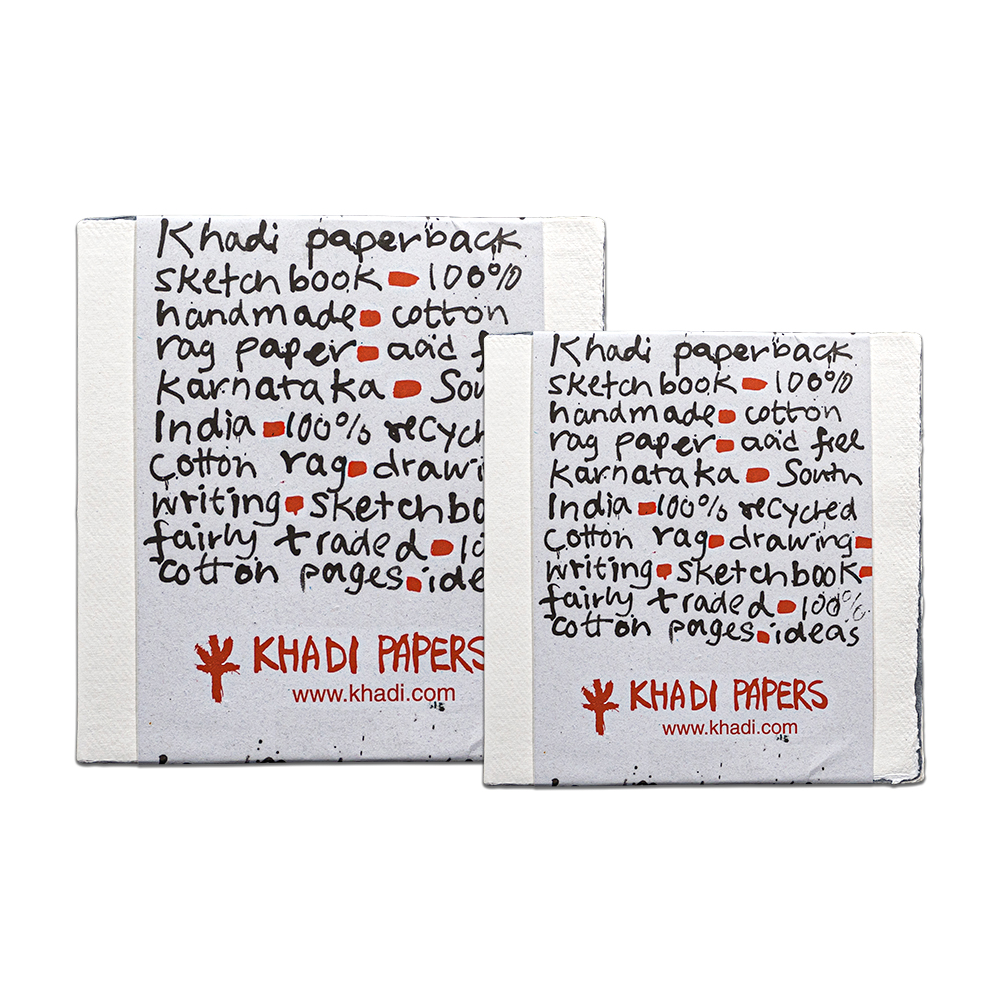 Khadi paperback
sketchbook 100%
handmade cotton
rag paper acid f
Karnataka Sou
India 100% recycl
cotton rag drawi
writing sketchbo
fairly traded 10
cotton pages ide
KHADI PAPERS
www.khadi.com
Khadi paperback
sketchbook 100%
handmade cotton
rag paper acid free
Karnataka South
India 100% recycled
cotton rag drawing
writing sketchbook
fairly traded 100%
cotton pages ideas
KHADI PAPERS
www.khadi.com